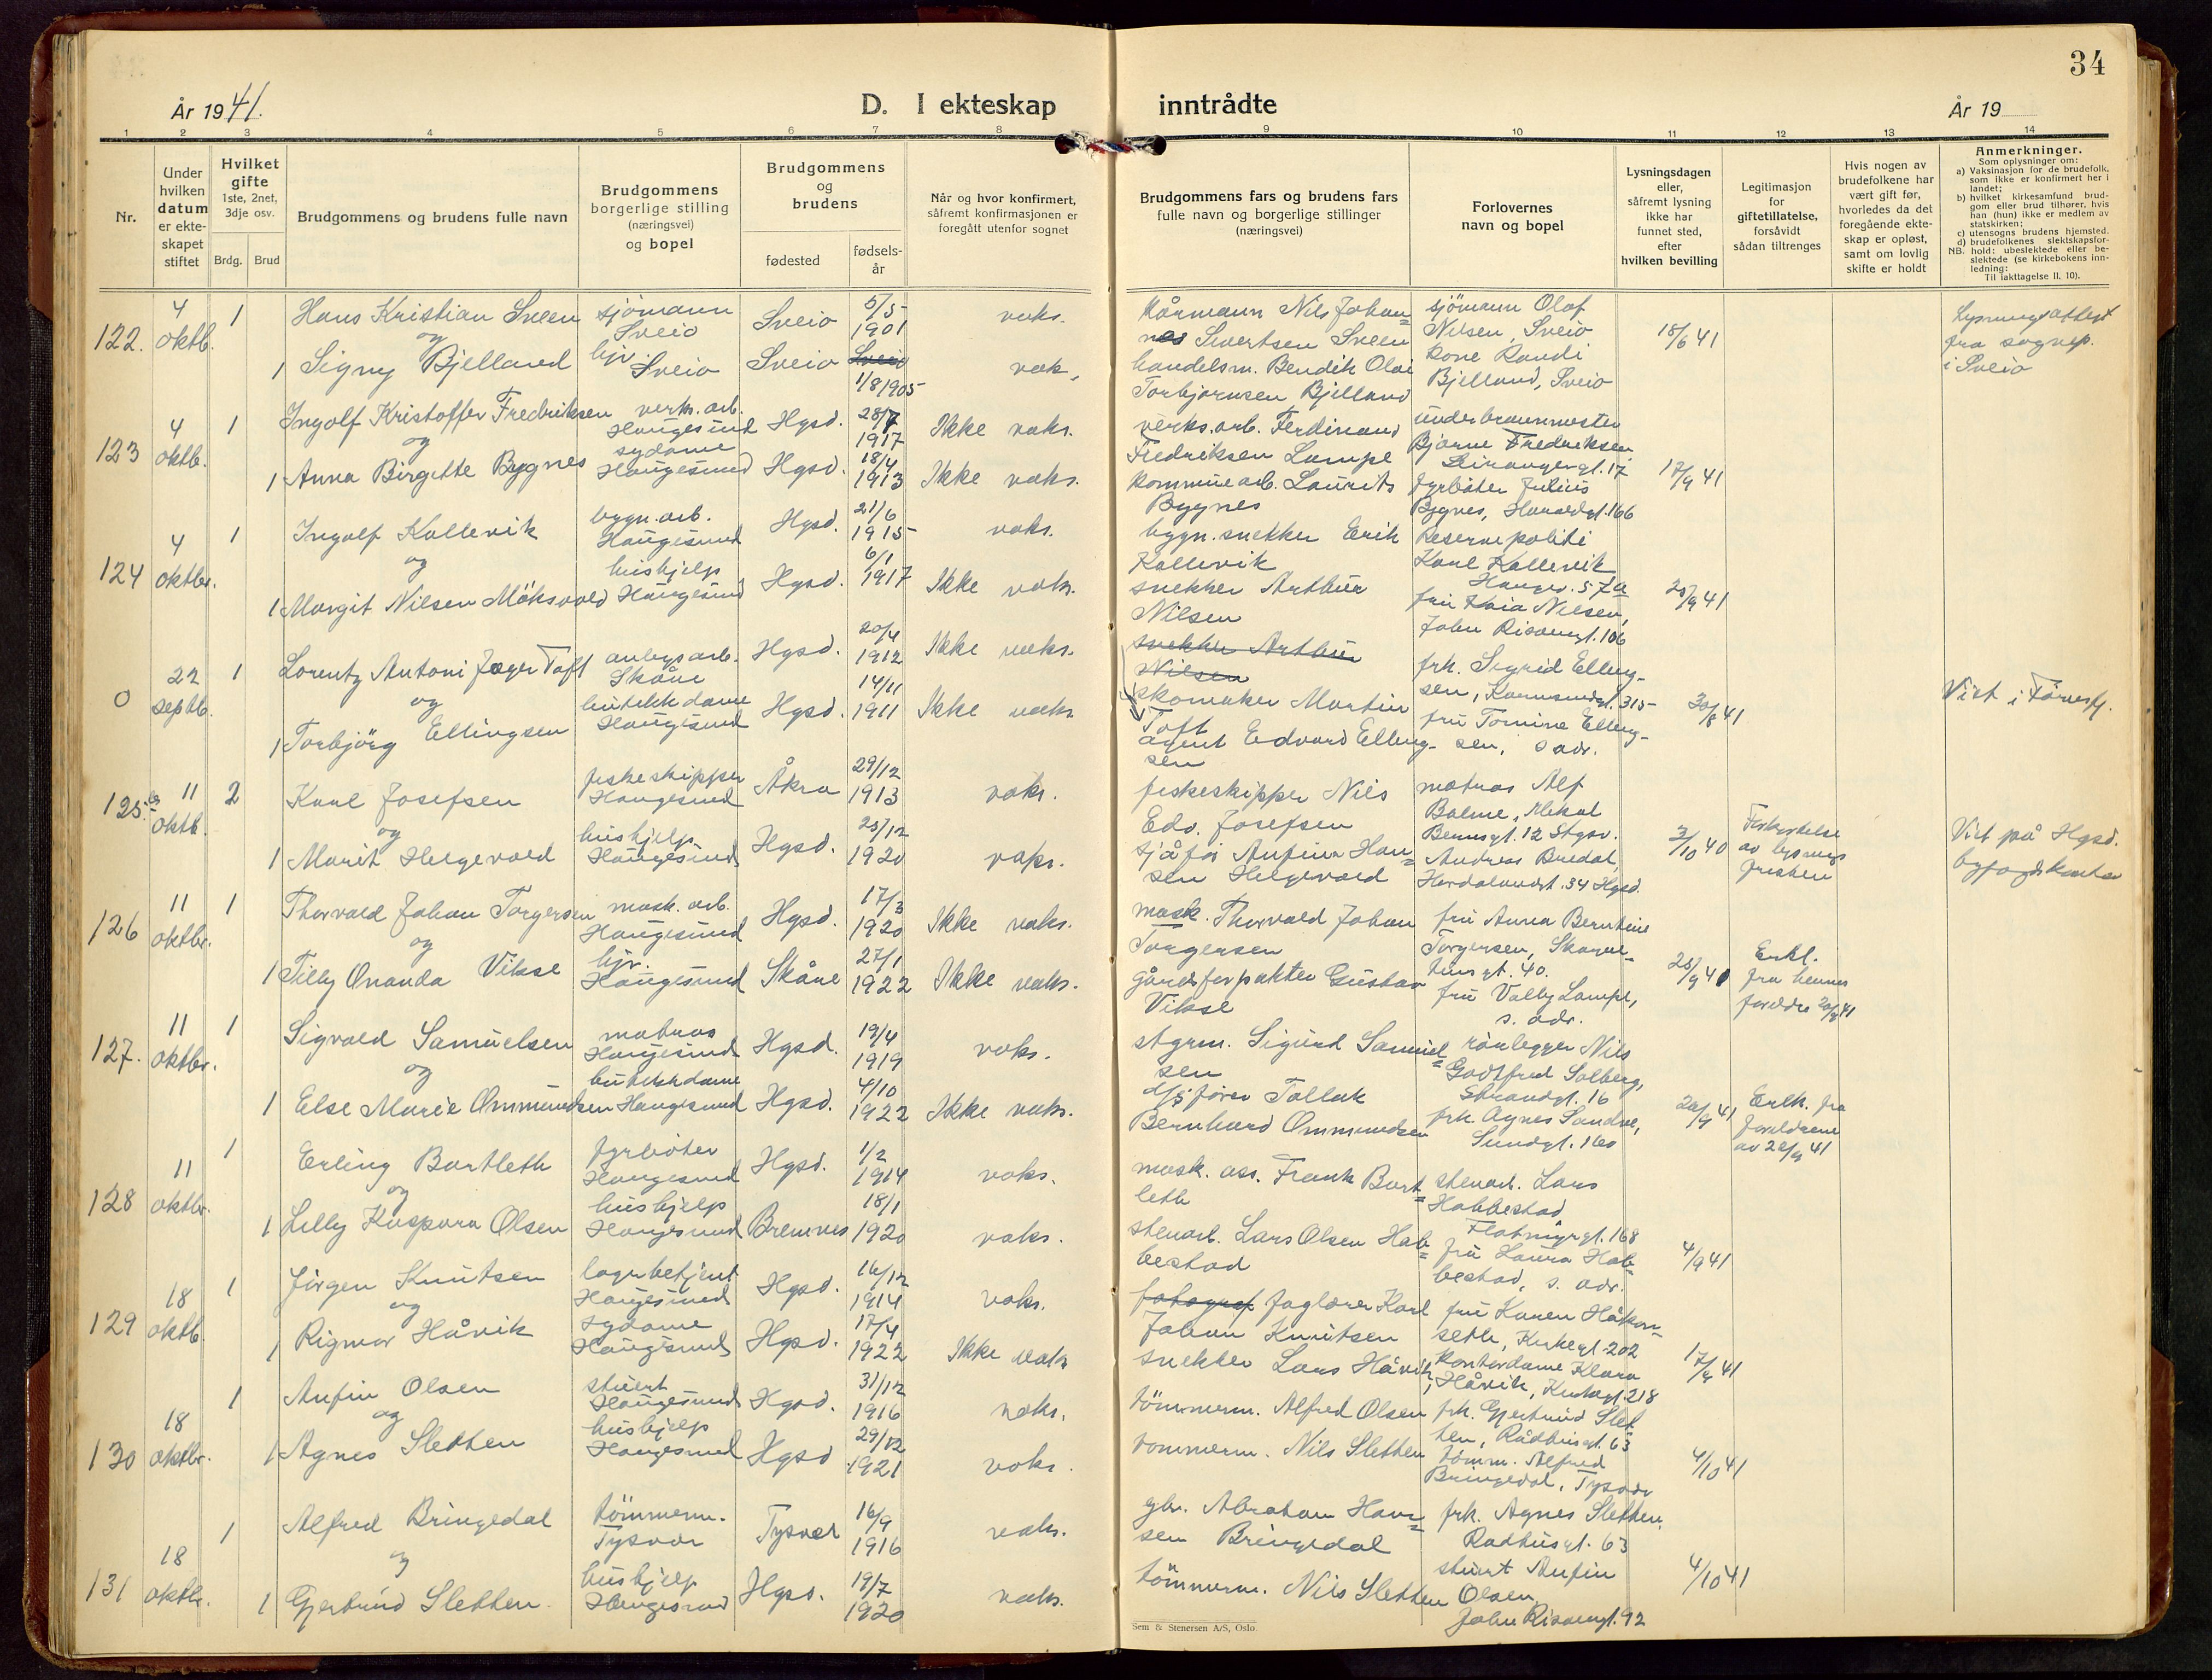 34
År 1941.
D. I ekteskap inntrådte
År 19
1 2 3 4 5 6 7 8 9 10 11 12 13 14
Nr.
Under hvilken datum er ekteskapet stiftet
Hvilket gifte 1ste, 2net, 3dje osv.
Brdg. Brud
Brudgommens og brudens fulle navn
Brudgommens borgerlige stilling (næringsvei) og bopel
Brudgommens og brudens
fødested
fødselsår
Når og hvor konfirmert, såfremt konfirmasjonen er foregått utenfor sognet
Brudgommens fars og brudens fars fulle navn og borgerlige stillinger (næringsvei)
Forlovernes navn og bopel
Lysningsdagen eller, såfremt lysning ikke har funnet sted, efter hvilken bevilling
Legitimasjon for giftetillatelse, forsåvidt sådan tiltrenges
Hvis nogen av brudefolkene har vært gift før, hvorledes da det foregående ekteskap er opløst, samt om lovlig skifte er holdt
Anmerkninger.
Som oplysninger om:
a) Vaksinasjon for de brudefolk, som ikke er konfirmert her i landet;
b) hvilket kirkesamfund brudgom eller brud tilhører, hvis han (hun) ikke er medlem av statskirken;
c) utensogns brudens hjemsted.
d) brudefolkenes slektskapsforhold: ubeslektede eller beslektede (se kirkebokens innledning:
NB.
Til iakttagelse II, 10).
122. 4 oktb. 1 Hans Kristian Sveen sjömann Sveio Sveio 5/5 1901 vaks.
og
1 Signy Bjelland hjv. Sveio Sveio 1/8 1905 vak,
Nils Johannes Sivertsen Sveen
handelsm. Bendik Olai Torbjørnsen Bjelland
sjömann Olaf Nilsen, Sveio
kone Randi Bjelland, Sveio
18/6 41
Lysningsattest fra sognep. i Sveio
123 4 oktb. 1 Ingolf Kristoffer Fredriksen verks. arb. Haugesund Hgsd. 28/7 1917 Ikke vaks.
og
1 Anna Birgitte Bygnes sydame Haugesund Hgsd. 18/4 1913 Ikke vaks.
verks. arb. Ferdinand Fredriksen Lampe
kommunearb. Laurits Bygnes
underbrannmester Bjarne Fredriksen
fyrbøter Julius Bygnes, Haraldgt. 166
17/9 41
124 4 oktbr. 1 Ingolf Kallevik bygn. arb. Haugesund Hgsd. 21/6 1915 vaks.
og
1 Margit Nilsen Möksvold hushjelp Haugesund Hgsd. 6/1 1917 Ikke vaks.
bygn. snekker Erik Kallevik
snekker Arthur Nilsen
Reservepoliti Karl Kallevik
fru Kaia Nilsen, John Risöengt. 106
25/9 41
0 22 septb. 1 Lorentz Antoni Jæger Toft anlegsarb. Skåne Hgsd. 20/4 1912 Ikke vaks.
og
1 Torbjörg Ellingsen butikkdame Haugesund Hgsd. 14/11 1911 Ikke vaks
snekker Arthur Nilsen
skomaker Martin Toft
agent Edvard Ellingsen
frk. Sigrid Ellingsen, Karmsundgt. 315
fru Tomine Ellingsen, s adr.
30/8 41
125. 11 oktb. 2 Karl Josefsen fiskeskipper Haugesund Åkra 29/12 1913 vaks.
og
1 Marit Helgevold hushjelp Haugesund Hgsd. 25/12 1920 vaks.
fiskeskipper Nils Edv. Josefsen
sjåför Anfinn Hansen Helgevold
matros Alf
Andreas Bredal, Hordalandgt. 34 Hgsd.
3/10 40
av lysningsfristen
Viet på Hgsd. byfogdkontor
126 11 oktbr. 1 Thorvald Johan Torgersen mask. arb. Haugesund Hgsd. 17/3 1920 Ikke vaks.
og
1 Tilly Ovanda Vikse hjv. Haugesund Skåre 27/1 1922 Ikke vaks.
mask. Thorvald Johan Torgersen
gårdsforpakter Gustav Vikse
fru Anna Berntine Torgersen, Skarehusgt. 40.
fru Valby Lampe, s. adr.
25/9 41
Erkl. fra hennes foreldre
127. 11 oktbr. 1 Sigvald Samuelsen matros Haugesund Hgsd. 19/4 1919 vaks.
og
1 Else Marie Ommundsen butikkdame Haugesund Hgsd. 4/10 1922 Ikke vaks.
stgrm. Sigurd Samuelsen
Tollak Bernhard Ommundsen
rörlegger Nils Godtfred Solberg, Strandgt. 16
frk. Agnes Sandve, Sundgt. 160
Erkl. fra foreldrene
128 11 oktbr. 1 Erling Bartleth fyrböter Haugesund Hgsd. 1/2 1914 vaks.
og
1 Lilly Kaspara Olsen hushjelp Haugesund Bremnes 18/1 1920 vaks.
mask. ass. Frank Bartleth
stenarb. Lars Olsen Habbestad
stenarb. Lars Habbestad Flotmyrgt. 168
fru Laura Habbestad, s. adr.
4/9 41
129 18 oktb. 1 Jörgen Knutsen lagerbetjent Haugesund Hgsd. 16/12 1914 vaks.
og
1 Rigmor Håvik sydame Haugesund Hgsd. 17/4 1922 Ikke vaks
fotograf faglærer Karl Johan Knutsen
snekker Lars Håvik
fru Karen Håkonseth, Kirkegt. 202
kontordame Klara Håvik, Kirkegt. 218
130 18 oktbr. 1 Anfin Olsen stuert Haugesund Hgsd. 31/12 1916 vaks.
og
1 Agnes Sletten hushjelp Haugesund Hgsd 29/12 1921 vaks.
tömmerm. Alfred Olsen
tömmerm. Nils Sletten
frk. Gjertrud Sletten, Rådhusgt. 63
tömm. Alfred Bringedal, Tysvær
4/10 41
131 18 oktbr. 1 Alfred Bringedal tömmerm. Tysvær Tysvær 16/9 1916 vaks.
og
1 Gjertrud Sletten. hushjelp Haugesund Hgsd. 19/7 1920 vaks.
gbr. Abraham Hansen Bringedal
tömmerm. Nils Sletten
frk. Agnes Sletten, Radhusgt. 63
stuert Anfin Olsen, John Risöengt. 92
4/10 41
Sem & Stenersen A/S, Oslo.